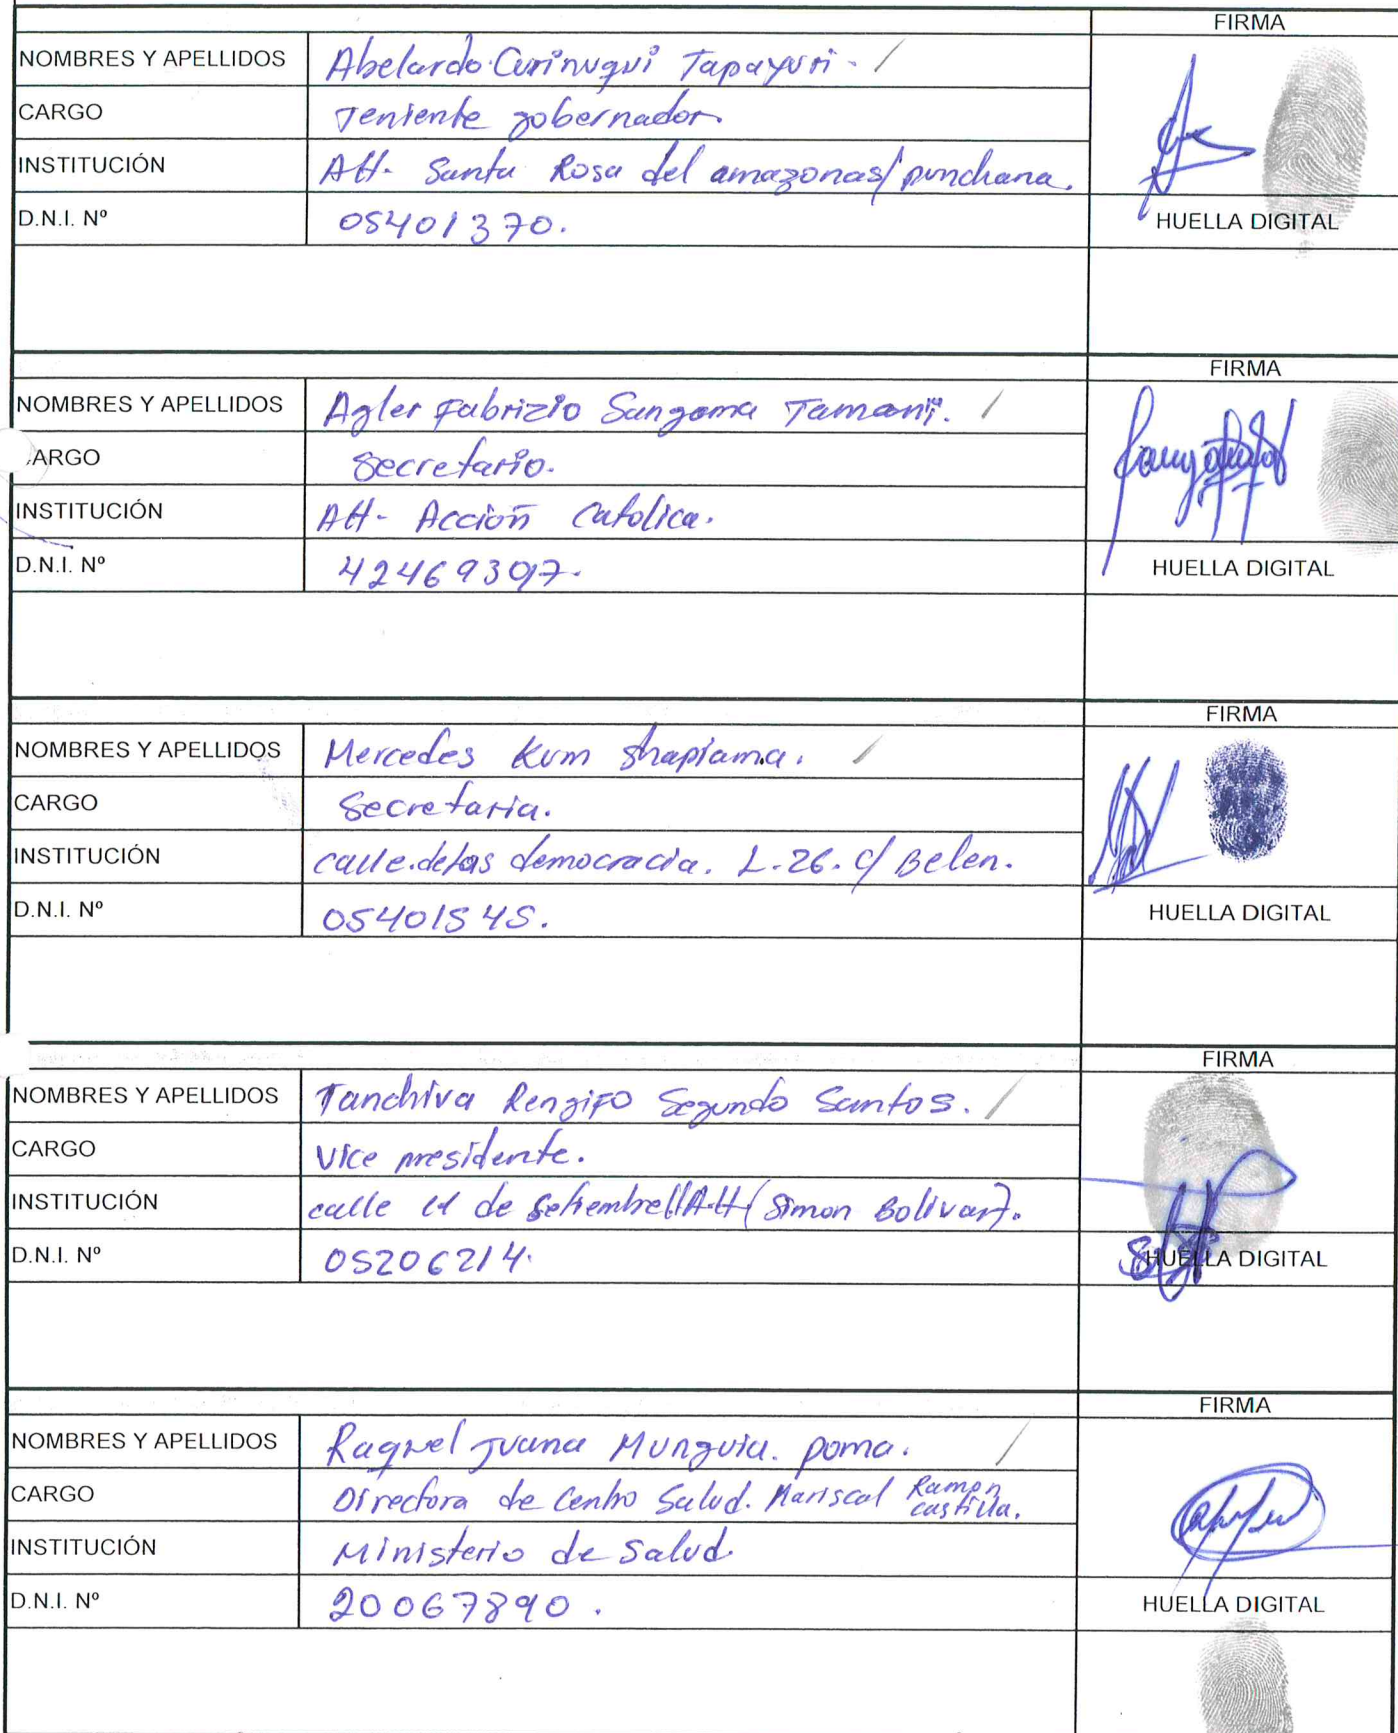 FIRMA
NOMBRES Y APELLIDOS Abelardo Curinuqui Tapayuri. /
CARGO Teniente gobernador.
INSTITUCIÓN AH. Santa Rosa del amazonas/punchana.
D.N.I. Nº 05401370.
HUELLA DIGITAL
FIRMA
NOMBRES Y APELLIDOS Agler Fabrizio Sangama Tamani. /
CARGO Secretario.
INSTITUCIÓN AH- Acción Catolica.
D.N.I. Nº
HUELLA DIGITAL
FIRMA
NOMBRES Y APELLIDOS Mercedes Kum Shapiama. /
CARGO Secretaria.
INSTITUCIÓN calle.delas democracia. L-26. c/ Belen.
D.N.I. Nº 05401545.
HUELLA DIGITAL
FIRMA
NOMBRES Y APELLIDOS Tanchiva Rengifo Segundo Santos. /
CARGO Vice presidente.
INSTITUCIÓN calle de setiembre A.H (Simon Bolivar).
D.N.I. Nº 05206214.
HUELLA DIGITAL
FIRMA
NOMBRES Y APELLIDOS Raquel Juana Munguia. poma. /
CARGO Directora de Centro Salud. Mariscal Ramon castilla.
INSTITUCIÓN Ministerio de Salud.
D.N.I. Nº 20067890.
HUELLA DIGITAL